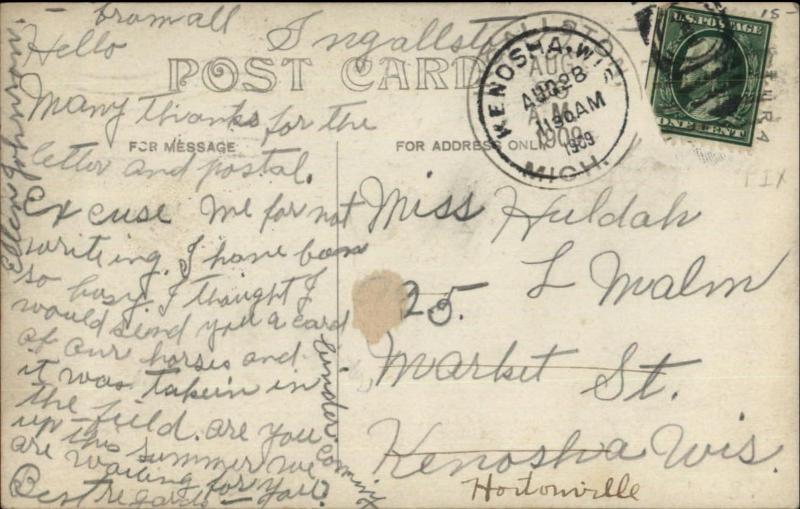 from all Ingallston
Hello
POST CARD
Many thanks for the
FOR MESSAGE
letter and postal.
Excuse me for not
writing. I have been
so busy. I thought I
would send you a card
of our horses and
it was takein in
the field. are you coming
up this summer we
are waiting for you.
Best regards —
Ellen Johnson.
FOR ADDRESS ONLY
KENOSHA, WIS.
AUG 28
1130 AM
1909
INGALLSTON
AUG
A.M.
1909
MICH.
U.S. POSTAGE
ONE CENT
15-
PIX
Miss Huldah
L Malm
25.
Market St.
Kenosha Wis.
Hortonville